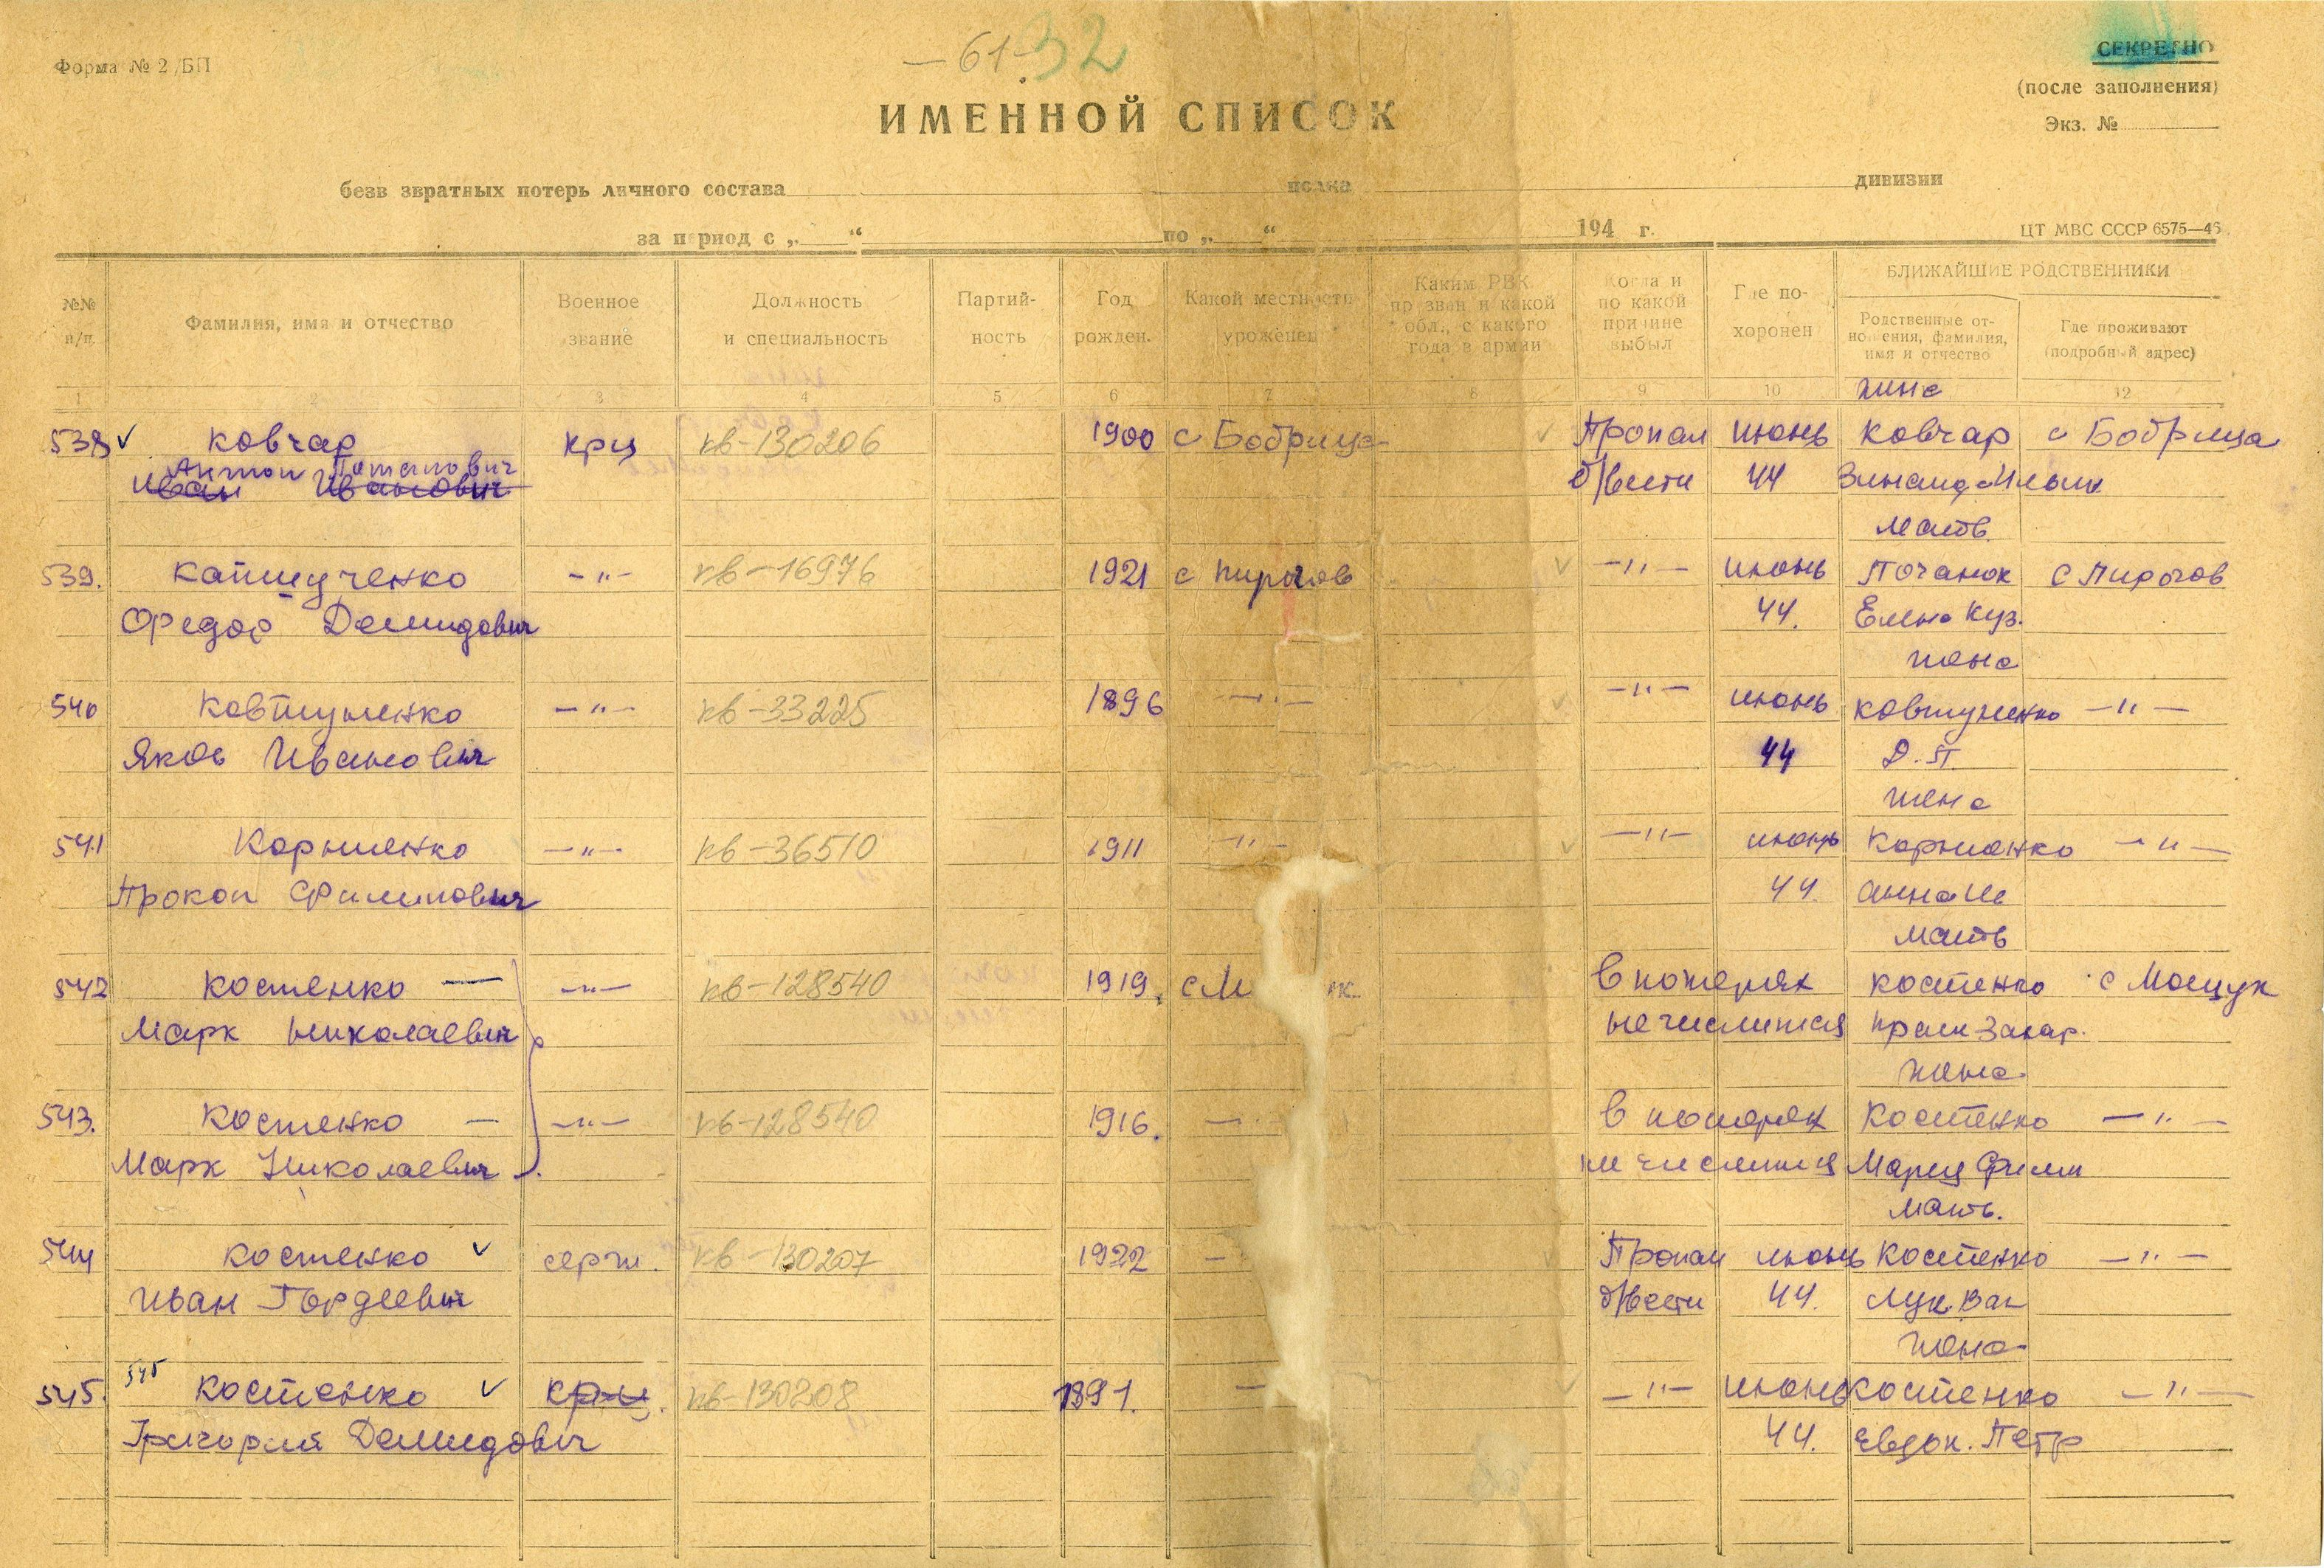 Форма № 2/БП
—61-
32
СЕКРЕТНО
(после заполнения)
Экз. №
ИМЕННОЙ СПИСОК
безв звратных потерь личного состава полка дивизии
за период с „ “ по „ “ 194 г.
ЦТ МВС СССР 6575—46
№№ п/п.
Фамилия, имя и отчество
Военное звание
Должность и специальность
Партий-ность
Год рожден.
Какой местности уроженец
Каким РВК призван и какой обл., с какого года в армии
Когда и по какой причине выбыл
Где по-хоронен
БЛИЖАЙШИЕ РОДСТВЕННИКИ
Родственные от-ношения, фамилия, имя и отчество
Где проживают (подробный адрес)
1 2 3 4 5 6 7 8 9 10 12
жена
538 ✓ Ковчар крц кв-130206 1900 с Бобрица Пропал июнь Ковчар с Бобрица
Антон Потапович
Иван Иванович б/вести 44 Зинаида Ильин
мать
539. Капшученко —"— кв-16976 1921 с Пирогов —"— июнь Почанок с Пирогов
Федор Демидович 44. Елена Куз.
жена
540 Ковтушенко —"— кв-33225 1896 —"— —"— июнь Ковтушенко —"—
Яков Иванович 44 Д. П.
жена
541 Корниенко —"— кв-36510 1911 —"— —"— июнь Корниенко —"—
Прокоп Филипович 44. Анна Ив
мать
542 Костенко — —"— кв-128540 1919. с М к. В потерях Костенко с Мощук
Марк Николаевич не числится Прат Захар.
жена
543. Костенко — —"— кв-128540 1916. —"— В потерях Костенко —"—
Марк Николаевич не числится Мария Филип
мать.
544 Костенко ✓ серж. кв-130207 1922 — Пропал июнь Костенко —"—
Иван Гордеевич б/вести 44. Лук. Вас
жена
545. 545 Костенко ✓ крц. кв-130208 1891. — —"— июнь Костенко —"—
Григорий Демидович 44. Евдок. Петр